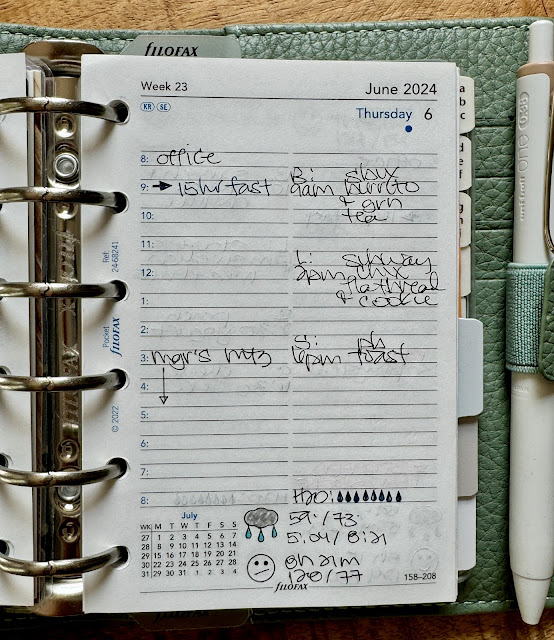 FILOFAX
Week 23
June 2024
KR SE
Thursday 6
8: office
B: sbux
9: → 15hr fast
9am burrito
& grn
10:
tea
11:
L: subway
12:
2pm chx
flatbread
1:
& cookie
2:
S: pb
3: mgr's mtg
6pm toast
4:
5:
6:
7:
8:
H2O:
59°/73°
5:24/8:21
120/77
July
WK M T W T F S S
27 1 2 3 4 5 6 7
28 8 9 10 11 12 13 14
29 15 16 17 18 19 20 21
30 22 23 24 25 26 27 28
31 29 30 31 1 2 3 4
158–208
FILOFAX
Ref. 24-68241
Pocket FILOFAX
© 2022
a
b
c
d
e
f